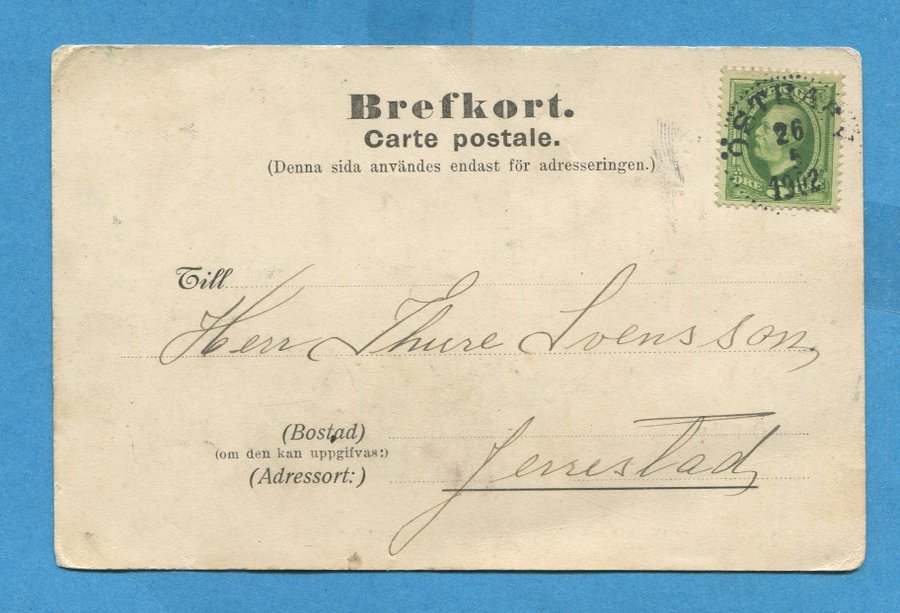 Brefkort.
Carte postale.
(Denna sida användes endast för adresseringen.)
26
5
1902
ÖRE
Till
Herr Thure Svensson,
(Bostad)
(om den kan uppgifvas:)
(Adressort:)
Jerrestad,